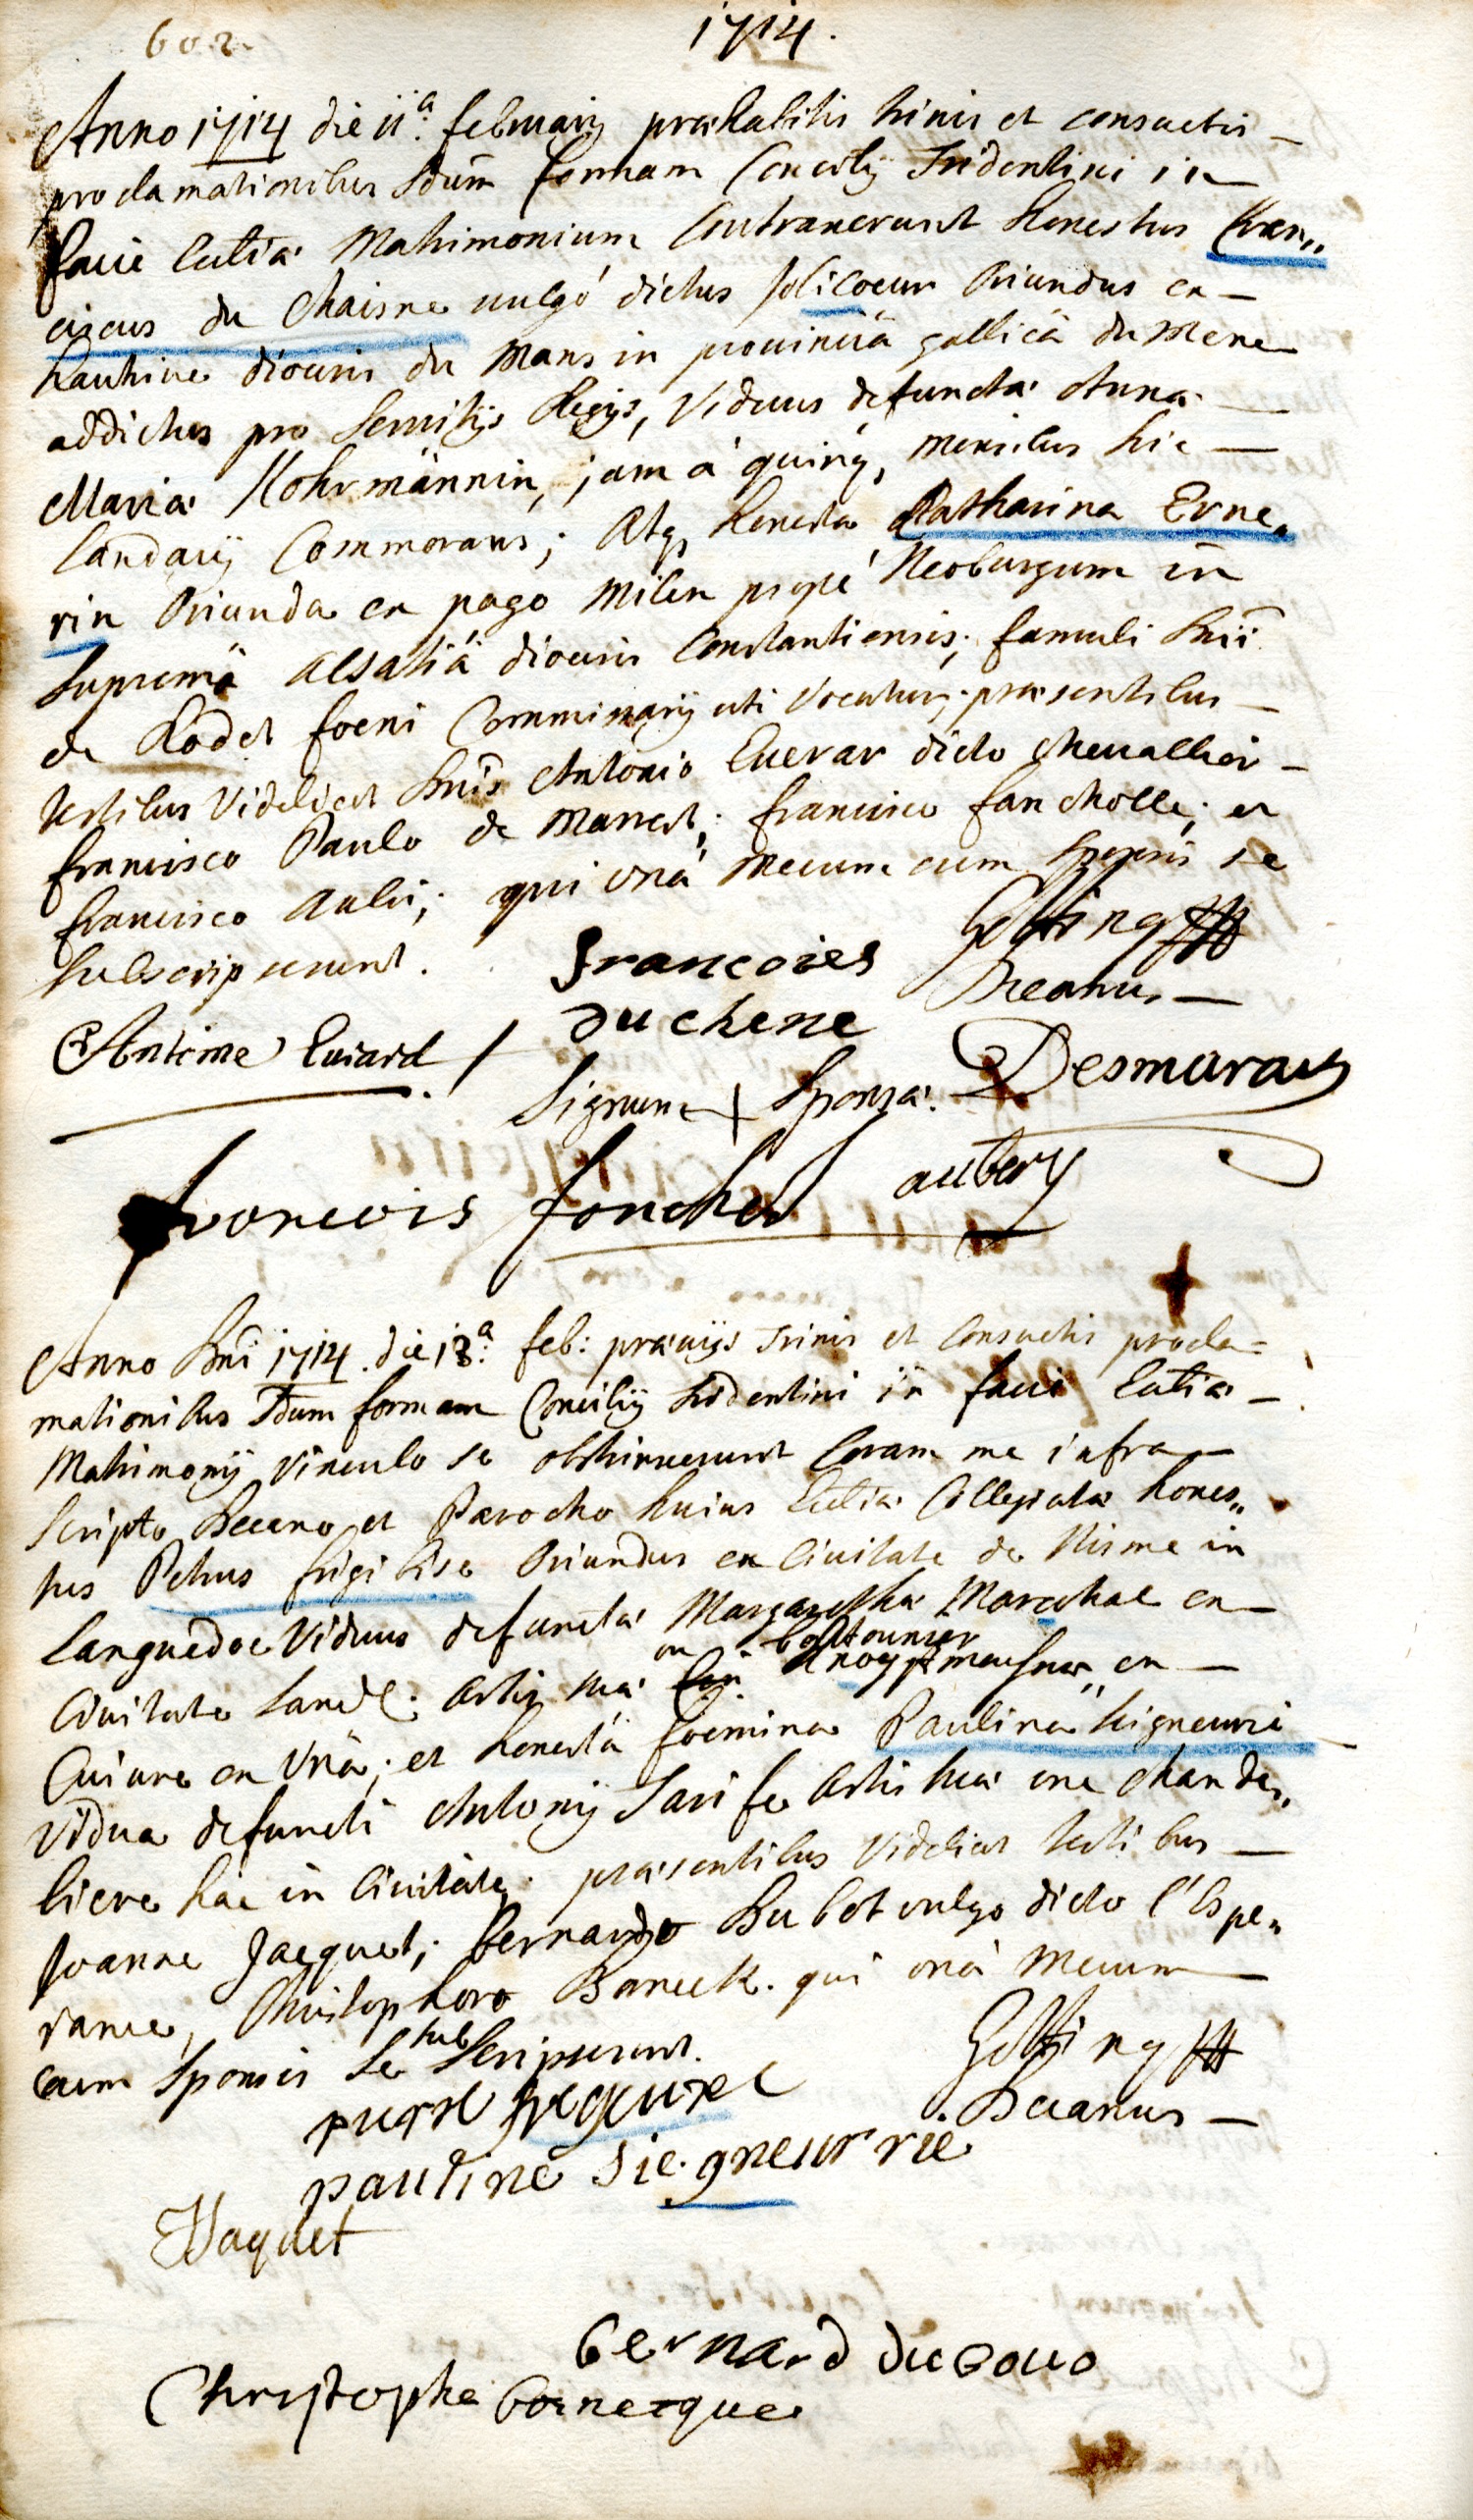 602
1714.
Anno 1714 die 11.a februarij præhabitis trinis et consuetis
proclamationibus sdum formam Concilij Tridentini in
facie Eccliæ Matrimonium Contraxerunt honestus Fran,,
ciscus du Chaisne vulgó dictus jolicoeur Oriundus ex
diocesis du Mans in prouinciâ gallicâ du Mene
addictus pro Seruitijs Regijs, Viduus defunctæ Annæ
Mariæ Mohrmännin, jam á quinq, mensibus hic
Landavij Commorans; Atq, honesta Catharina Erne,,
rin Oriunda ex pago Milen propé Neoburgum in
Supremâ Alsatiâ diocesis Constantiensis; famuli Dnii
de Rodet foeni Commissarij uti Vocatur; præsentibus
testibus Videlicet Dnis Antonio Euerar dicto cheuallier
francisco Paulo de Marrest; francisco fancholle; et
francisco Aubri; qui unâ mecum cum sponsis se
subscripserunt.
Götting
Decanus
francoies
du chene
Antoine Euiard
Signum + Sponsæ.
Desmarais
francois fonchel
aubery
Anno Dni 1714. die 13.a feb: præuijs trinis et Consuetis procla=
mationibus sdum formam Concilij tridentini in facie Eccliæ
Matrimonij Vinculo se obstrinxerunt Coram me infra
scripto Decano et Parocho huius Eccliæ Collegiatæ hones,,
tus Petrus frigilise Oriundus ex Ciuitate de Nisme in
Languedoc Viduus defunctæ Margarethæ Marechal ex
Ciuitate Land: Artis suæ
un boutounier
ex
Quiure en Vnâ; et honestâ foemina Paulinâ Signeurie
Vidua defuncti Antonij Sarife Artis suæ une chande,,
liere hac in Ciuitate; præsentibus Videlicet testibus
Joanne Jacquet; Bernardo Dubot vulgo dicto l'Espe,,
rance, Christophoro Baneck. qui unâ mecum
cum Sponsis se subscripserunt.
Götting
Decanus
pauline siegneurrie
Jaquet
bernard duboua
Christophe bornecque